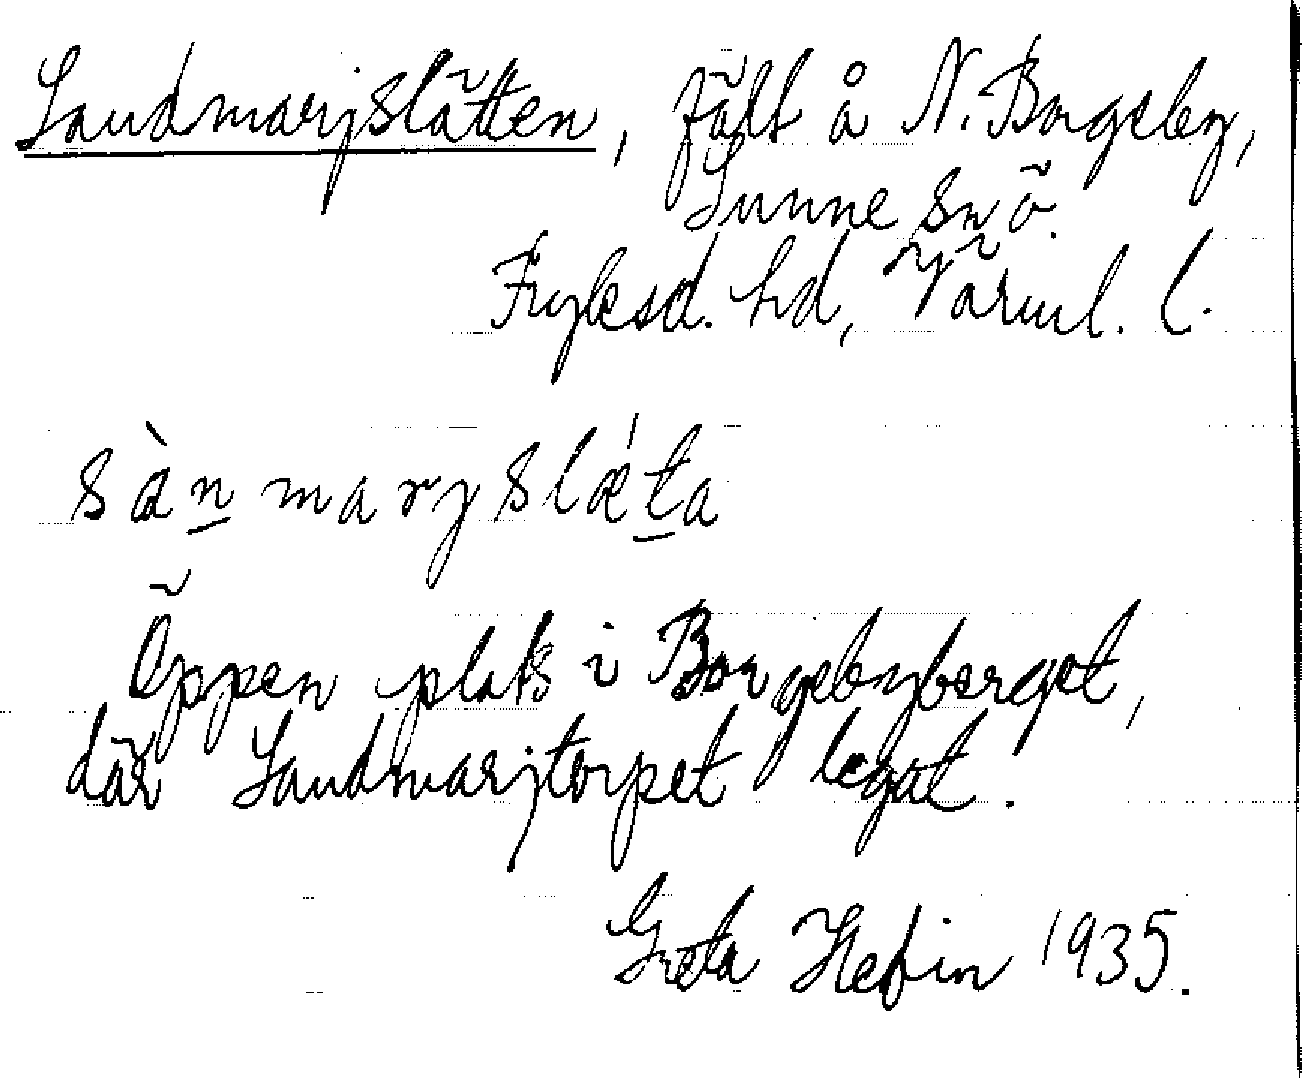 Sandmarjslätten, fält å N. Borgeby,
Sunne snö.
Fryksd. hd, Värml. l.
sànmarjslǽta
Öppen plats i Borgebyberget,
där Sandmarjtorpet legat.
Greta Hedin 1935.